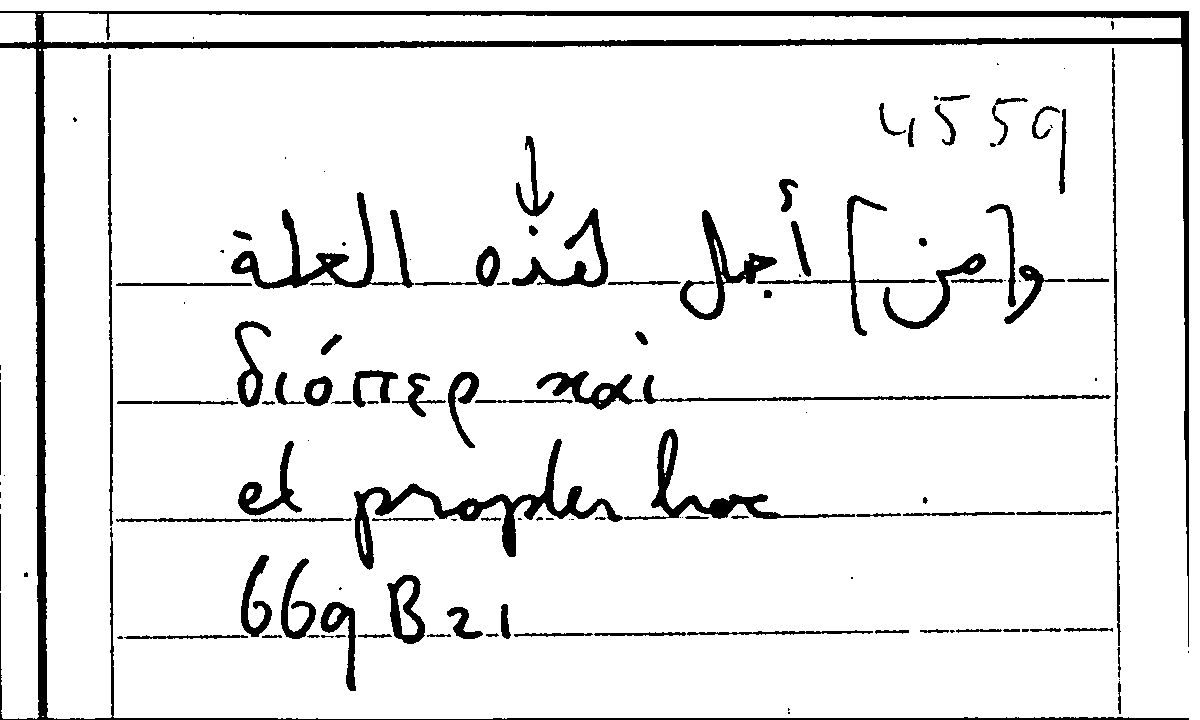 4559
↓
و[من] أجل هذه العلة
διόπερ καὶ
et propter hoc
669 B 21